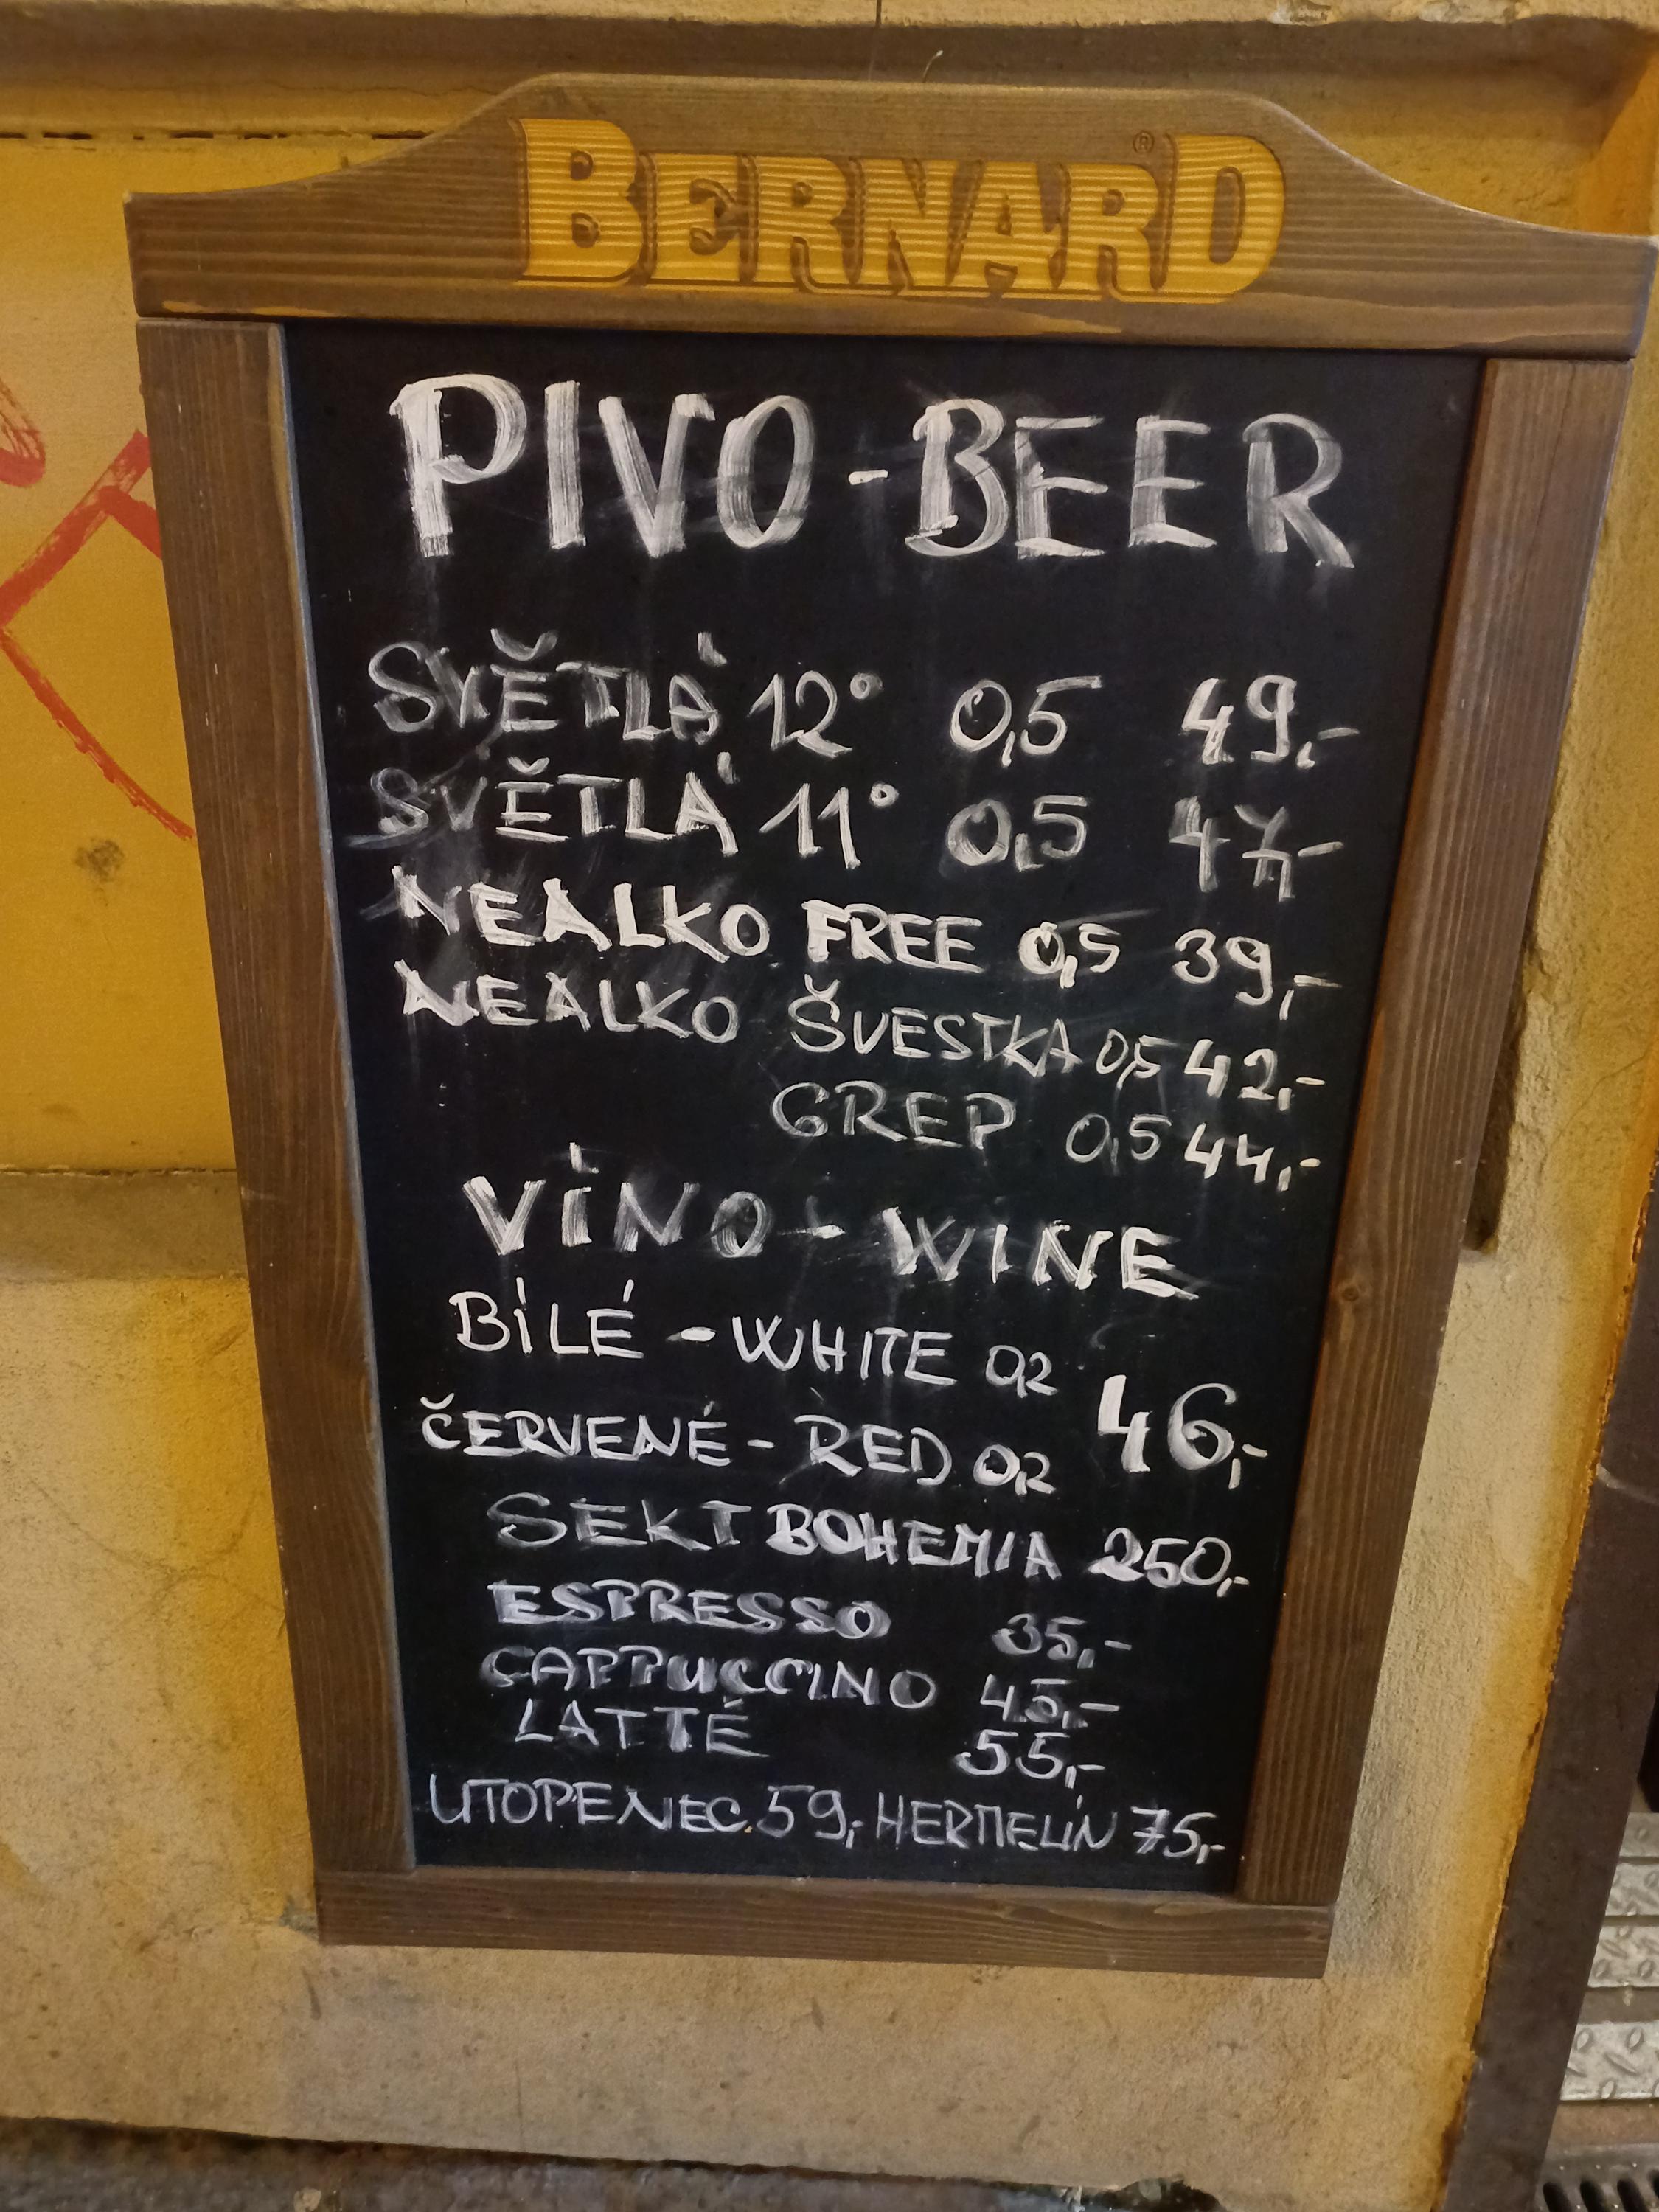 BERNARD®
PIVO - BEER
SVĚTLÁ 12° 0,5 49,-
SVĚTLÁ 11° 0,5 47,-
NEALKO FREE 0,5 39,-
NEALKO ŠVESTKA 0,5 42,-
GREP 0,5 44,-
VÍNO - WINE
BÍLÉ - WHITE 0,2
46,-
ČERVENÉ - RED 0,2
SEKT BOHEMIA 250,-
ESPRESSO 35,-
CAPPUCCINO 45,-
LATTÉ 55,-
UTOPENEC 59,- HERMELÍN 75,-